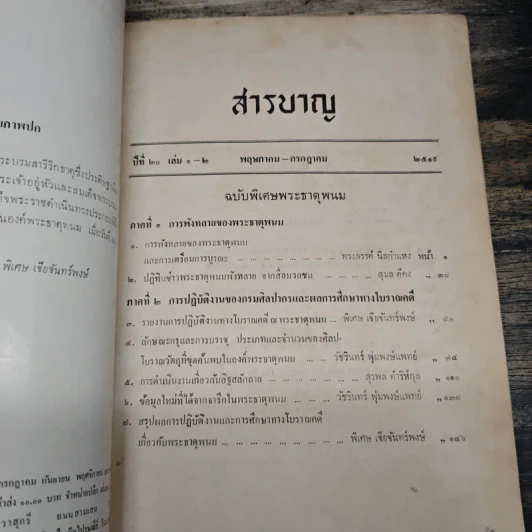 ยภาพปก
พิเศษ เจียจันทร์พงษ์
สารบาญ
ปีที่ ๒๐ เล่ม ๑-๒ พฤษภาคม-กรกฎาคม ๒๕๑๙
ฉบับพิเศษพระธาตุพนม
ภาคที่ ๑ การพังทลายของพระธาตุพนม
๑. การพังทลายของพระธาตุพนม
และการเตรียมการบูรณะ ... ทรงสรรค์ นิลกำแหง หน้า ๑
๒. ปฏิทินข่าวพระธาตุพนมพังทลาย จากสื่อมวลชน ... สุมล คีคง ,, ๓๘
ภาคที่ ๒ การปฏิบัติงานของกรมศิลปากรและผลการศึกษาทางโบราณคดี
๓. รายงานการปฏิบัติงานทางโบราณคดี ณ พระธาตุพนม ... พิเศษ เจียจันทร์พงษ์ ,,
๔. ลักษณะกรุและการบรรจุ ประเภทและจำนวนของศิลป-
โบราณวัตถุที่ขุดค้นพบในองค์พระธาตุพนม ... วัชรินทร์ พุ่มพงษ์แพทย์ ,, ๗๔
๕. การดำเนินงานเกี่ยวกับอิฐสลักลาย ... สุรพล ดำริห์กุล ,, ๑๑๐
๖. ข้อมูลใหม่ที่ได้จากจารึกในพระธาตุพนม ... วัชรินทร์ พุ่มพงษ์แพทย์ ,, ๑๓๘
๗. สรุปผลการปฏิบัติงานและการศึกษาทางโบราณคดี
เกี่ยวกับพระธาตุพนม ... พิเศษ เจียจันทร์พงษ์ ,, ๑๔๖
กรกฎาคม กันยายน พฤศจิกายน
ถนนสามเสน